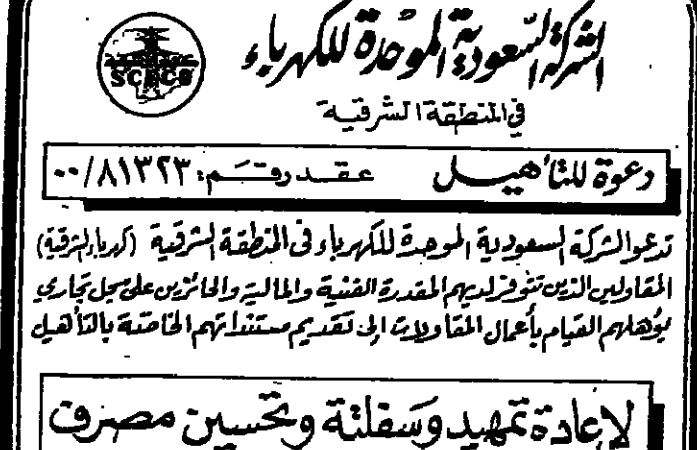 الشركة السعودية الموحدة للكهرباء
SCECO
في المنطقة الشرقية
دعوة للتأهيل عقد رقم: ٠٠/٨١٣٢٣
تدعو الشركة السعودية الموحدة للكهرباء في المنطقة الشرقية (كهرباء الشرقية)
المقاولين الذين تتوفر لديهم المقدرة الفنية والمالية والحائزين على سجل تجاري
يؤهلهم القيام بأعمال المقاولات إلى تقديم مستنداتهم الخاصة بالتأهيل
لإعادة تمهيد وسفلتة وتحسين مصرف